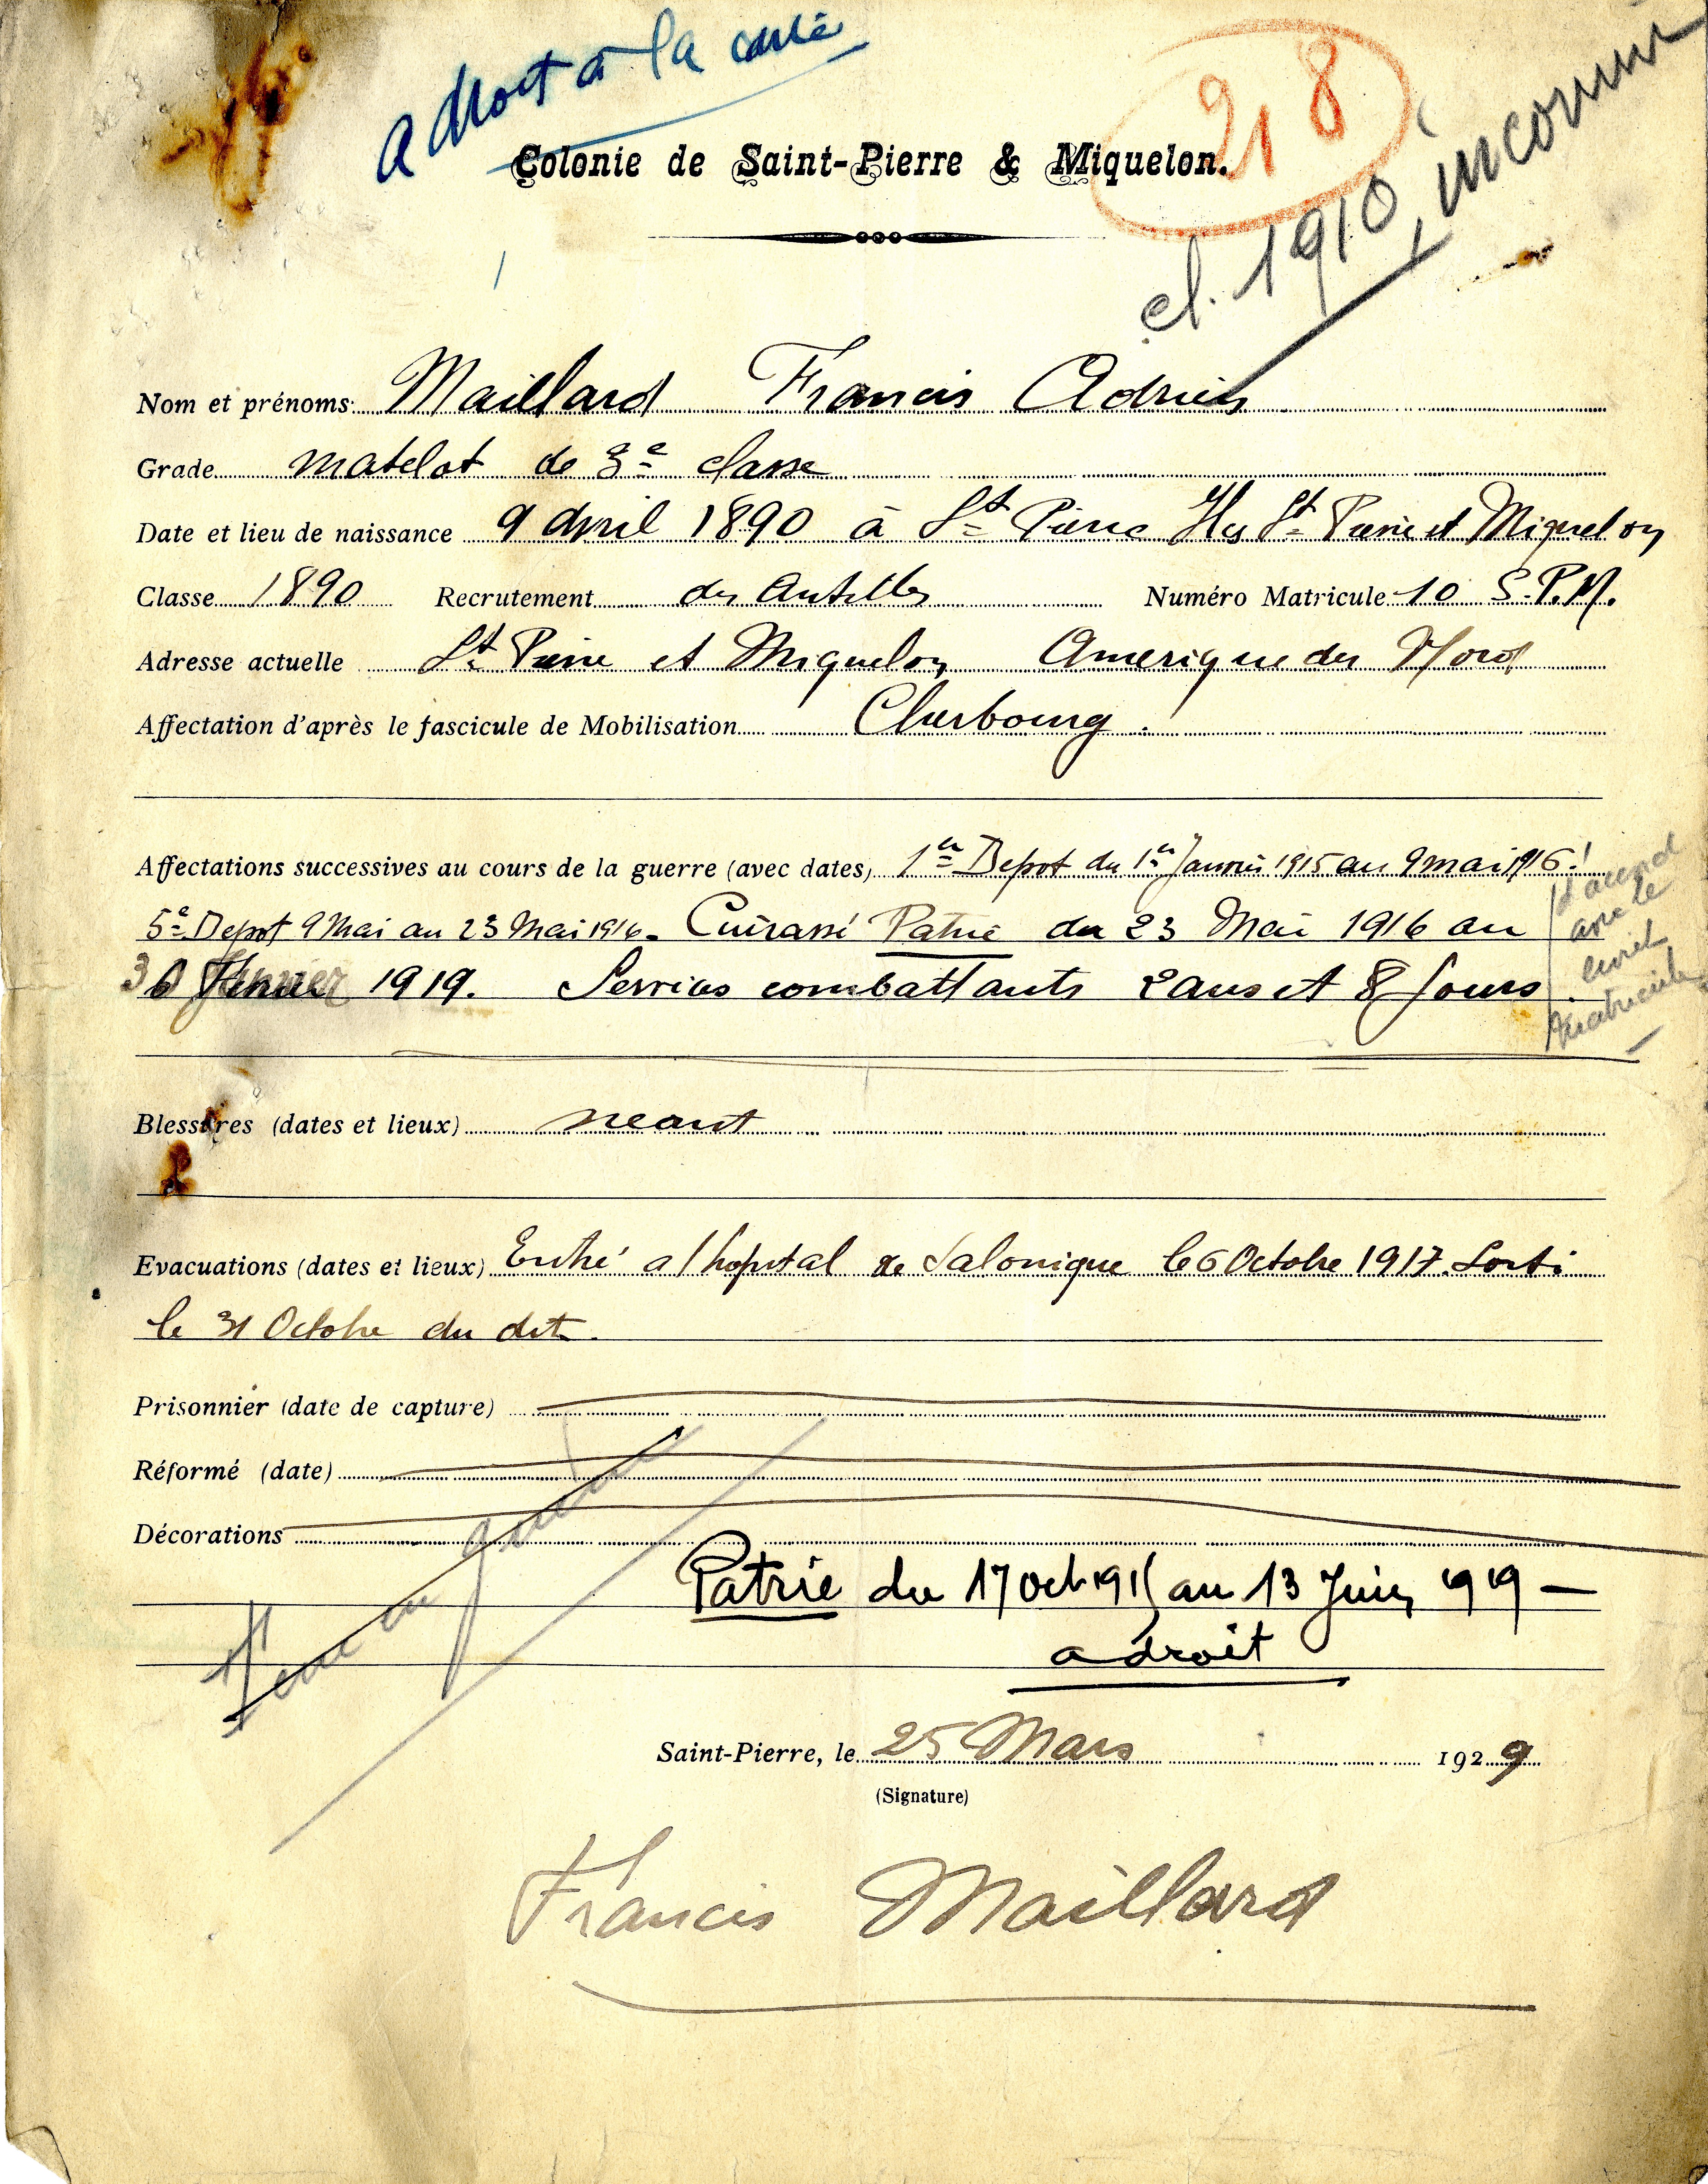 a droit à la carte
218
Colonie de Saint-Pierre & Miquelon.
cl. 1910 inconnu
Nom et prénoms Maillard Francis Adrien
Grade matelot de 3e classe
Date et lieu de naissance 9 Avril 1890 à St Pierre Iles St Pierre et Miquelon
Classe 1890 Recrutement des Antilles Numéro Matricule 10 S.P.M.
Adresse actuelle St Pierre et Miquelon Amerique du Nord
Affectation d'après le fascicule de Mobilisation Cherbourg.
Affectations successives au cours de la guerre (avec dates) 1er Depot du 1er Janvier 1915 au 9 mai 1916.
5e Depot 9 Mai au 23 Mai 1916. Cuirassé Patrie du 23 Mai 1916 au
30 Janvier 1919. Services combattants 2 ans et 8 Jours.
d'accord
avec le
livret
matricule
Blessures (dates et lieux) neant
Evacuations (dates et lieux) Entré a l hopital de Salonique le 6 Octobre 1917. Sorti
le 31 Octobre du dit.
Prisonnier (date de capture)
Réformé (date)
Décorations
Patrie du 17 oct 1915 au 13 Juin 1919 —
a droit
Saint-Pierre, le 25 Mars 1929
(Signature)
Francis Maillard